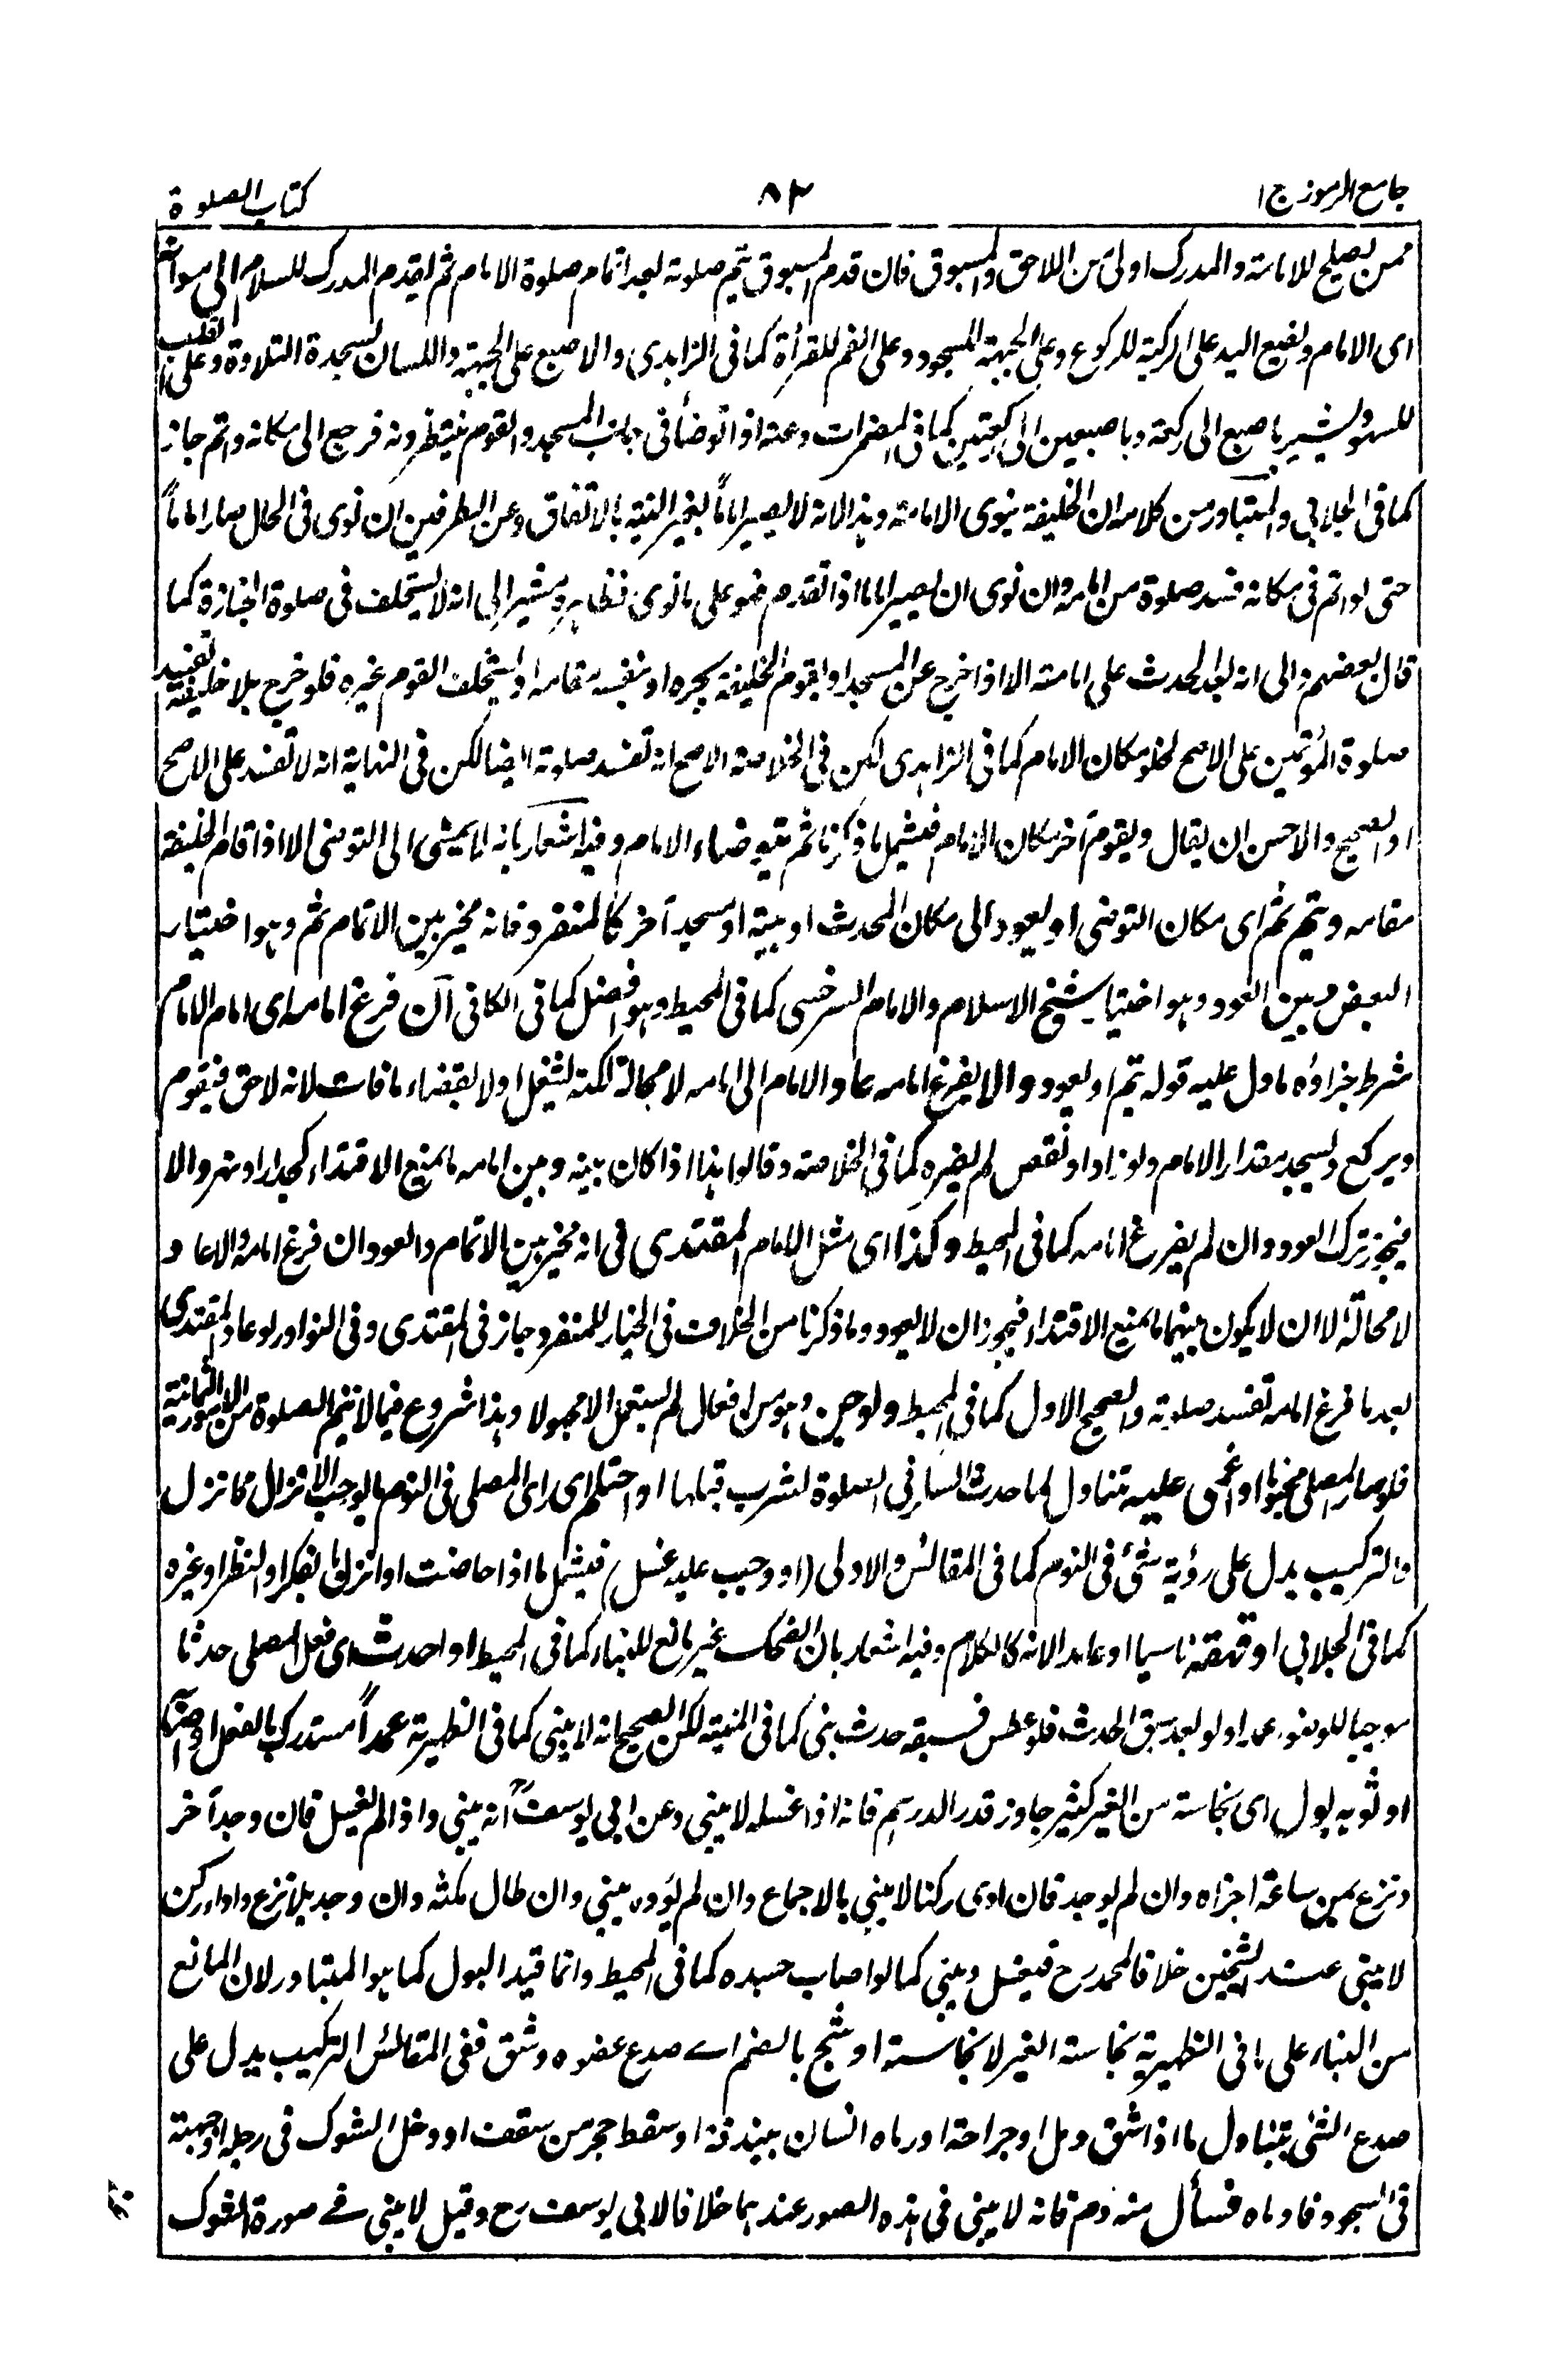 جامع الرموز ج ١
٨٢
كتاب الصلوة
ممن يصلح للامامة والمدرك اولى من اللاحق والمسبوق فان قدم المسبوق يتم صلوته بعد اتمام صلوة الامام ثم يقدم المدرك للسلام الى سواتم
اى الامام ويضع اليد على الركبة للركوع وعلى الجبهة للسجود وعلى الفم للقرأة كما فى الزاهدى والاصبع على الجبهة واللسان لسجدة التلاوة وعلى القلب
للسهو ويشير باصبع الى ركعة وباصبعين الى ركعتين كما فى المضمرات وعنه اذا توضأ فى جانب المسجد والقوم ينتظرونه فرجع الى مكانه واتم جاز
كما فى الجلابى والمتبادر من كلامه ان الخليفة ينوى الامامة وهذا لانه لا يصير اماماً بغير النية بالاتفاق وعن الطرفين ان نوى فى الحال صار اماماً
حتى لو اتم فى مكانه فسد صلوة من امامه وان نوى ان يصير اماما اذا تقدم فهو على ما نوى فظاهره مشير الى انه لا يستخلف فى صلوة الجنازة كما
قال بعضهم والى انه بعد الحدث على امامته الا اذا خرج عن المسجد او يقوم الخليفة بجره او بنفسه مقامه او يستخلف القوم غيره فلو خرج بلا خليفة تفسد
صلوة المؤتمين على الاصح لخلو مكان الامام كما فى الزاهدى لكن فى الخلاصة الاصح انه تفسد صلوته ايضا لكن فى النهاية انه لا تفسد على الاصح
او الصحيح والاحسن ان يقال ويقوم آخر مكان الامام فيشمل ما ذكرنا ثم يتوضاء الامام وفيه اشعار بانه لا يمشى الى التوضى الا اذا قام الخليفة
مقامه ويتم ثم اى مكان التوضى او يعود الى مكان الحدث او بيته او مسجد آخر كالمنفرد فانه مخير بين الاتمام ثم وهو اختيار
البعض وبين العود وهو اختيار شيخ الاسلام والامام السرخسى كما فى المحيط وهو افضل كما فى الكافى ان فرغ امامه اى امام الامام
شرط جزاؤه ما دل عليه قوله يتم او يعود والا يفرغ امامه عاد الامام الى امامه لا محالة لكنه يشتغل اولا بقضاء ما فات لانه لاحق فيقوم
ويركع ويسجد مقدار الامام ولو زاد او نقص لم يضره كما فى الخلاصة وقالوا هذا اذا كان بينه وبين امامه ما يمنع الاقتداء كجدار او نهر والا
فيجوز ترك العود وان لم يفرغ امامه كما فى المحيط وكذا اى مثل الامام المقتدى فى انه مخير بين الاتمام والعود ان فرغ امامه والا عاد
لا محالة الا ان لا يكون بينهما ما يمنع الاقتداء فيجوز ان لا يعود وما ذكرنا من الخلاف فى الخيار للمنفرد جاز فى المقتدى وفى النوادر لو عاد المقتدى
بعد ما فرغ امامه تفسد صلوته والصحيح الاول كما فى المحيط ولو جن وهو من افعال لم يستعمل الا مجهولا وهذا شروع فيما لا تتم الصلوة من الامور الثمانية
فلو صار المصلى مجنونا او اغمى عليه يتناول لما حدث السارى الصلوة لشرب قبلها او احتلم اى راى المصلى فى النوم ما يوجب الانزال فانزل
والتركيب يدل على رؤية شئ فى النوم كما فى المقائس والاولى (او وجب عليه غسل) فيشمل ما اذا حاضت او انزل بالفكر او النظر او غيره
كما فى الجلابى او قهقه ناسيا او عامدا لانه كالكلام وفيه اشعار بان الضحك غير مانع للبناء كما فى المحيط او احدث اى فعل المصلى حدثا
موجبا للوضوء عمدا ولو بعد سبق الحدث فلو عطس فسبقه حدث بنى كما فى المنية لكن الصحيح انه لا يبنى كما فى الظهيرية عمداً مستدرك بالفعل او اصابه
او ثوبه بول اى نجاسة من الغير كثير جاوز قدر الدرهم فانه اذا غسله لا يبنى وعن ابى يوسفؒ انه يبنى واذا لم يغسل فان وجد آخر
ونزع بمن ساعة اجزاه وان لم يوجد فان ادى ركنا لا يبنى بالاجماع وان لم يؤده يبنى وان طال مكثه وان وجد بلا نزع واداء ركن
لا يبنى عند الشيخين خلافا لمحمد رح فيغسل ويبنى كما لو اصاب جسده كما فى المحيط وانما قيد البول كما هو المتبادر لان المانع
من البناء على ما فى الظهيرية نجاسة الغير لا نجاسته او شج بالضم اى صدع عضوه وشق ففى المقائس التركيب يدل على
صدع الشئ يتناول ما اذا شق دمل او جراحة او رماه انسان ببندقة او سقط حجر من سقف او دخل الشوك فى رجله او جبهته
فى السجود فادماه فسأل منه دم فانه لا يبنى فى هذه الصور عندهما خلافا لابى يوسف رح وقيل لا يبنى فى صورة الشوك